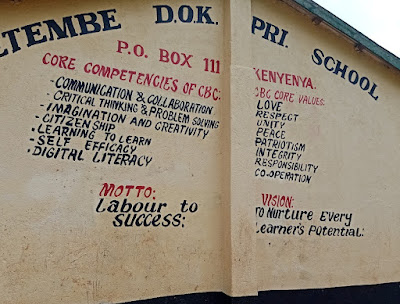 LTEMBE D.O.K. PRI. SCHOOL
P.O. BOX 111 KENYENYA.
CORE COMPETENCIES OF CBC:
- COMMUNICATION & COLLABORATION
- CRITICAL THINKING & PROBLEM SOLVING
- IMAGINATION AND CREATIVITY
- CITIZENSHIP
- LEARNING TO LEARN
- SELF EFFICACY
- DIGITAL LITERACY
MOTTO:
Labour to
SUCCESS:
CBC CORE VALUES:
LOVE
RESPECT
UNITY
PEACE
PATRIOTISM
INTEGRITY
RESPONSIBILITY
CO-OPERATION
VISION:
To Nurture Every
Learner's Potential: